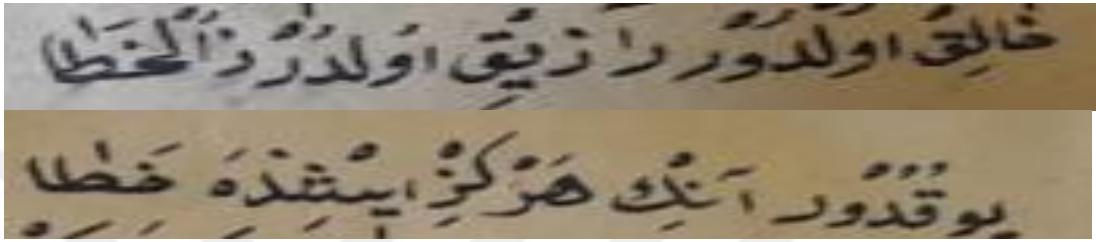 خَالِقْ اولدُوْر رازِيْقِ اُولدُرْ ذَالْخَطا
يوقْدُور آنِكْ هَرْكِزْ ايِشِنْدَهَ خَطا